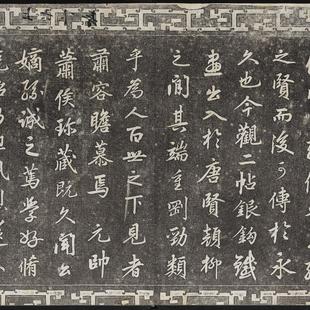 之賢而後可傳於永
久也今觀二帖銀鉤鐵
畫出入於唐賢顏柳
之間其端重剛勁類
乎為人百世之下見者
肅容瞻慕焉元帥
蕭侯珎藏既久聞公
嫡孫誠之篤學好脩